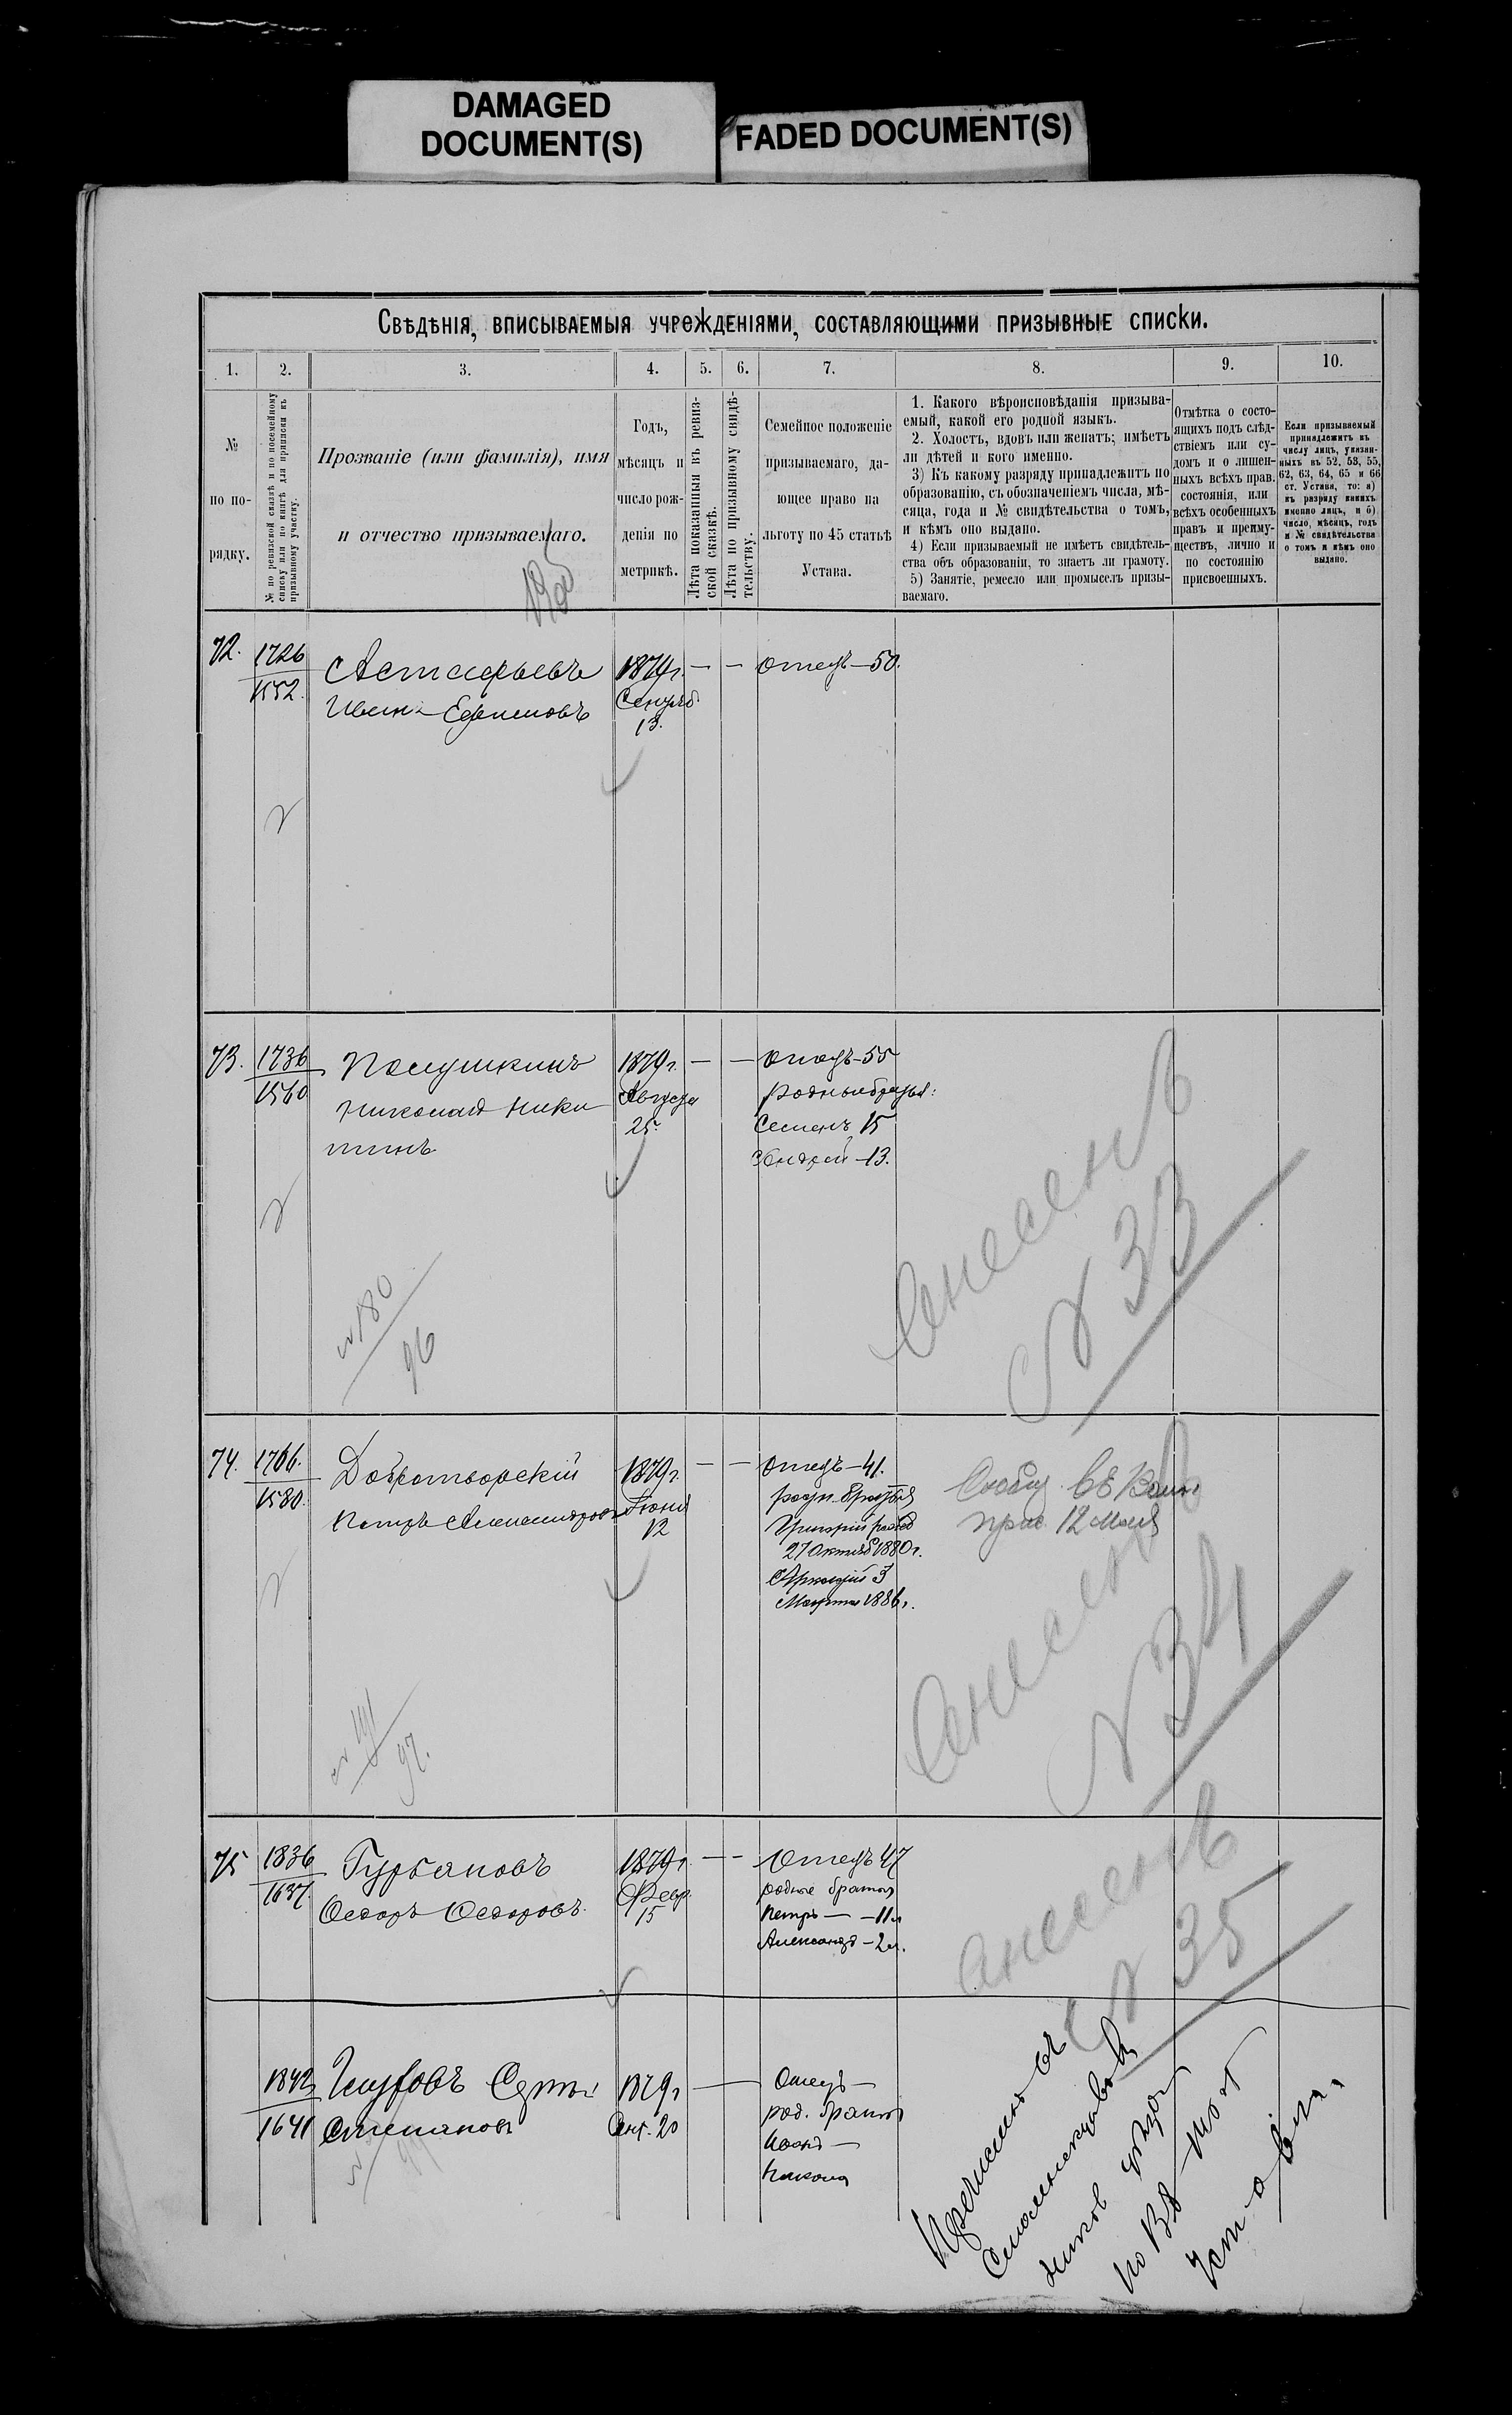 DAMAGED
DOCUMENT(S)
FADED DOCUMENT(S)
Свѣдѣнія, вписываемыя учрежденіями, составляющими призывные списки.
1. 2. 3. 4. 5. 6. 7. 8. 9. 10.
№
по по-
рядку.
№ по ревизской сказкѣ и по посемейному
списку или по книгѣ для приписки къ
призывному участку.
Прозваніе (или фамилія), имя
и отчество призываемаго.
Годъ,
мѣсяцъ и
число рож-
денія по
метрикѣ.
Лѣта показанныя въ ревиз-
ской сказкѣ.
Лѣта по призывному свидѣ-
тельству.
Семейное положеніе
призываемаго, да-
ющее право на
льготу по 45 статьѣ
Устава.
1. Какого вѣроисповѣданія призыва-
емый, какой его родной языкъ.
2. Холостъ, вдовъ или женатъ; имѣетъ
ли дѣтей и кого именно.
3) Къ какому разряду принадлежитъ по
образованію, съ обозначеніемъ числа, мѣ-
сяца, года и № свидѣтельства о томъ,
и кѣмъ оно выдано.
4) Если призываемый не имѣетъ свидѣтель-
ства объ образованіи, то знаетъ ли грамоту.
5) Занятіе, ремесло или промыселъ призы-
ваемаго.
Отмѣтка о состо-
ящихъ подъ слѣд-
ствіемъ или су-
домъ и о лишен-
ныхъ всѣхъ прав.
состоянія, или
всѣхъ особенныхъ
правъ и преиму-
ществъ, лично и
по состоянію
присвоенныхъ.
Если призываемый
принадлежитъ къ
числу лицъ, указан-
ныхъ въ 52, 53, 55,
62, 63, 64, 65 и 66
ст. Устава, то: а)
къ разряду какихъ
именно лицъ, и б)
число, мѣсяцъ, годъ
и № свидѣтельства
о томъ и кѣмъ оно
выдано.
72.
1726
1552.
Астафьевъ
Иванъ Ефимовъ
1879 г.
Сентяб.
13.
— —
отецъ—50.
73.
1736
1560
Николай Ники
тинъ
1879 г.
Августа
25.
— —
отецъ—55
Родные братья:
Семенъ 15
Андрей—13.
№ 180
96
Внесенъ
№ 33
74.
1766.
1580.
Добротворскій
Петръ Александровъ
1879 г.
Іюня
12
— —
отецъ—41.
родн. братья
Григорій
27 Октяб 1880 г.
Аркадій 3
Марта 1886 г.
12 Мая
97.
Внесенъ
№ 34
75
1836
1637.
Гурьяновъ
Ѳедоръ Ѳедоровъ.
1879 г.
Февр.
15
— —
Отецъ 47
родные братья
Петръ — —11 л
Александр—2 л.
Внесенъ
№ 35
1842
1641
Степановъ
1879 г
Сент. 20
Отецъ—
род. братья
Никола